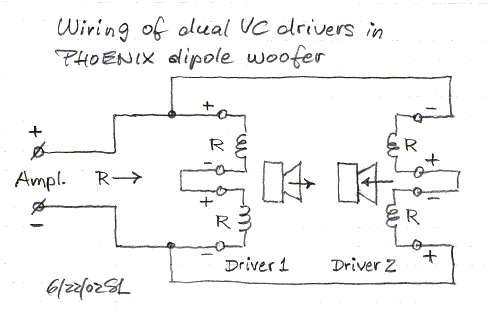 Wiring of dual VC drivers in
PHOENIX dipole woofer
+ + -
R R
+ - +
Ampl. R→ + -
R R
- - +
Driver 1 Driver 2
6/22/02 SL